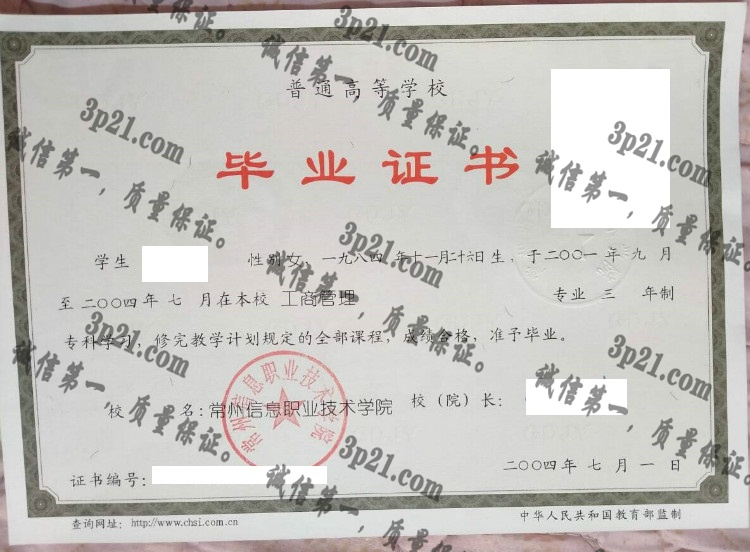 普通高等学校
毕业证书
学生 性别女,一九八四年十一月二十六日生,于二〇〇一年九月
至二〇〇四年七月在本校 工商管理 专业 三 年制
专科学习,修完教学计划规定的全部课程,成绩合格,准予毕业。
校 名:常州信息职业技术学院 校(院)长:
常州信息职业技术学院
证书编号:
二〇〇四年七月一日
查询网址:http://www.chsi.com.cn
中华人民共和国教育部监制
3p21.com
诚信第一,质量保证。
3p21.com
诚信第一,质量保证。
3p21.com
诚信第一,质量保证。
3p21.com
诚信第一,质量保证。
3p21.com
诚信第一,质量保证。
3p21.com
诚信第一,质量保证。
3p21.com
诚信第一,质量保证。
3p21.com
诚信第一,质量保证。